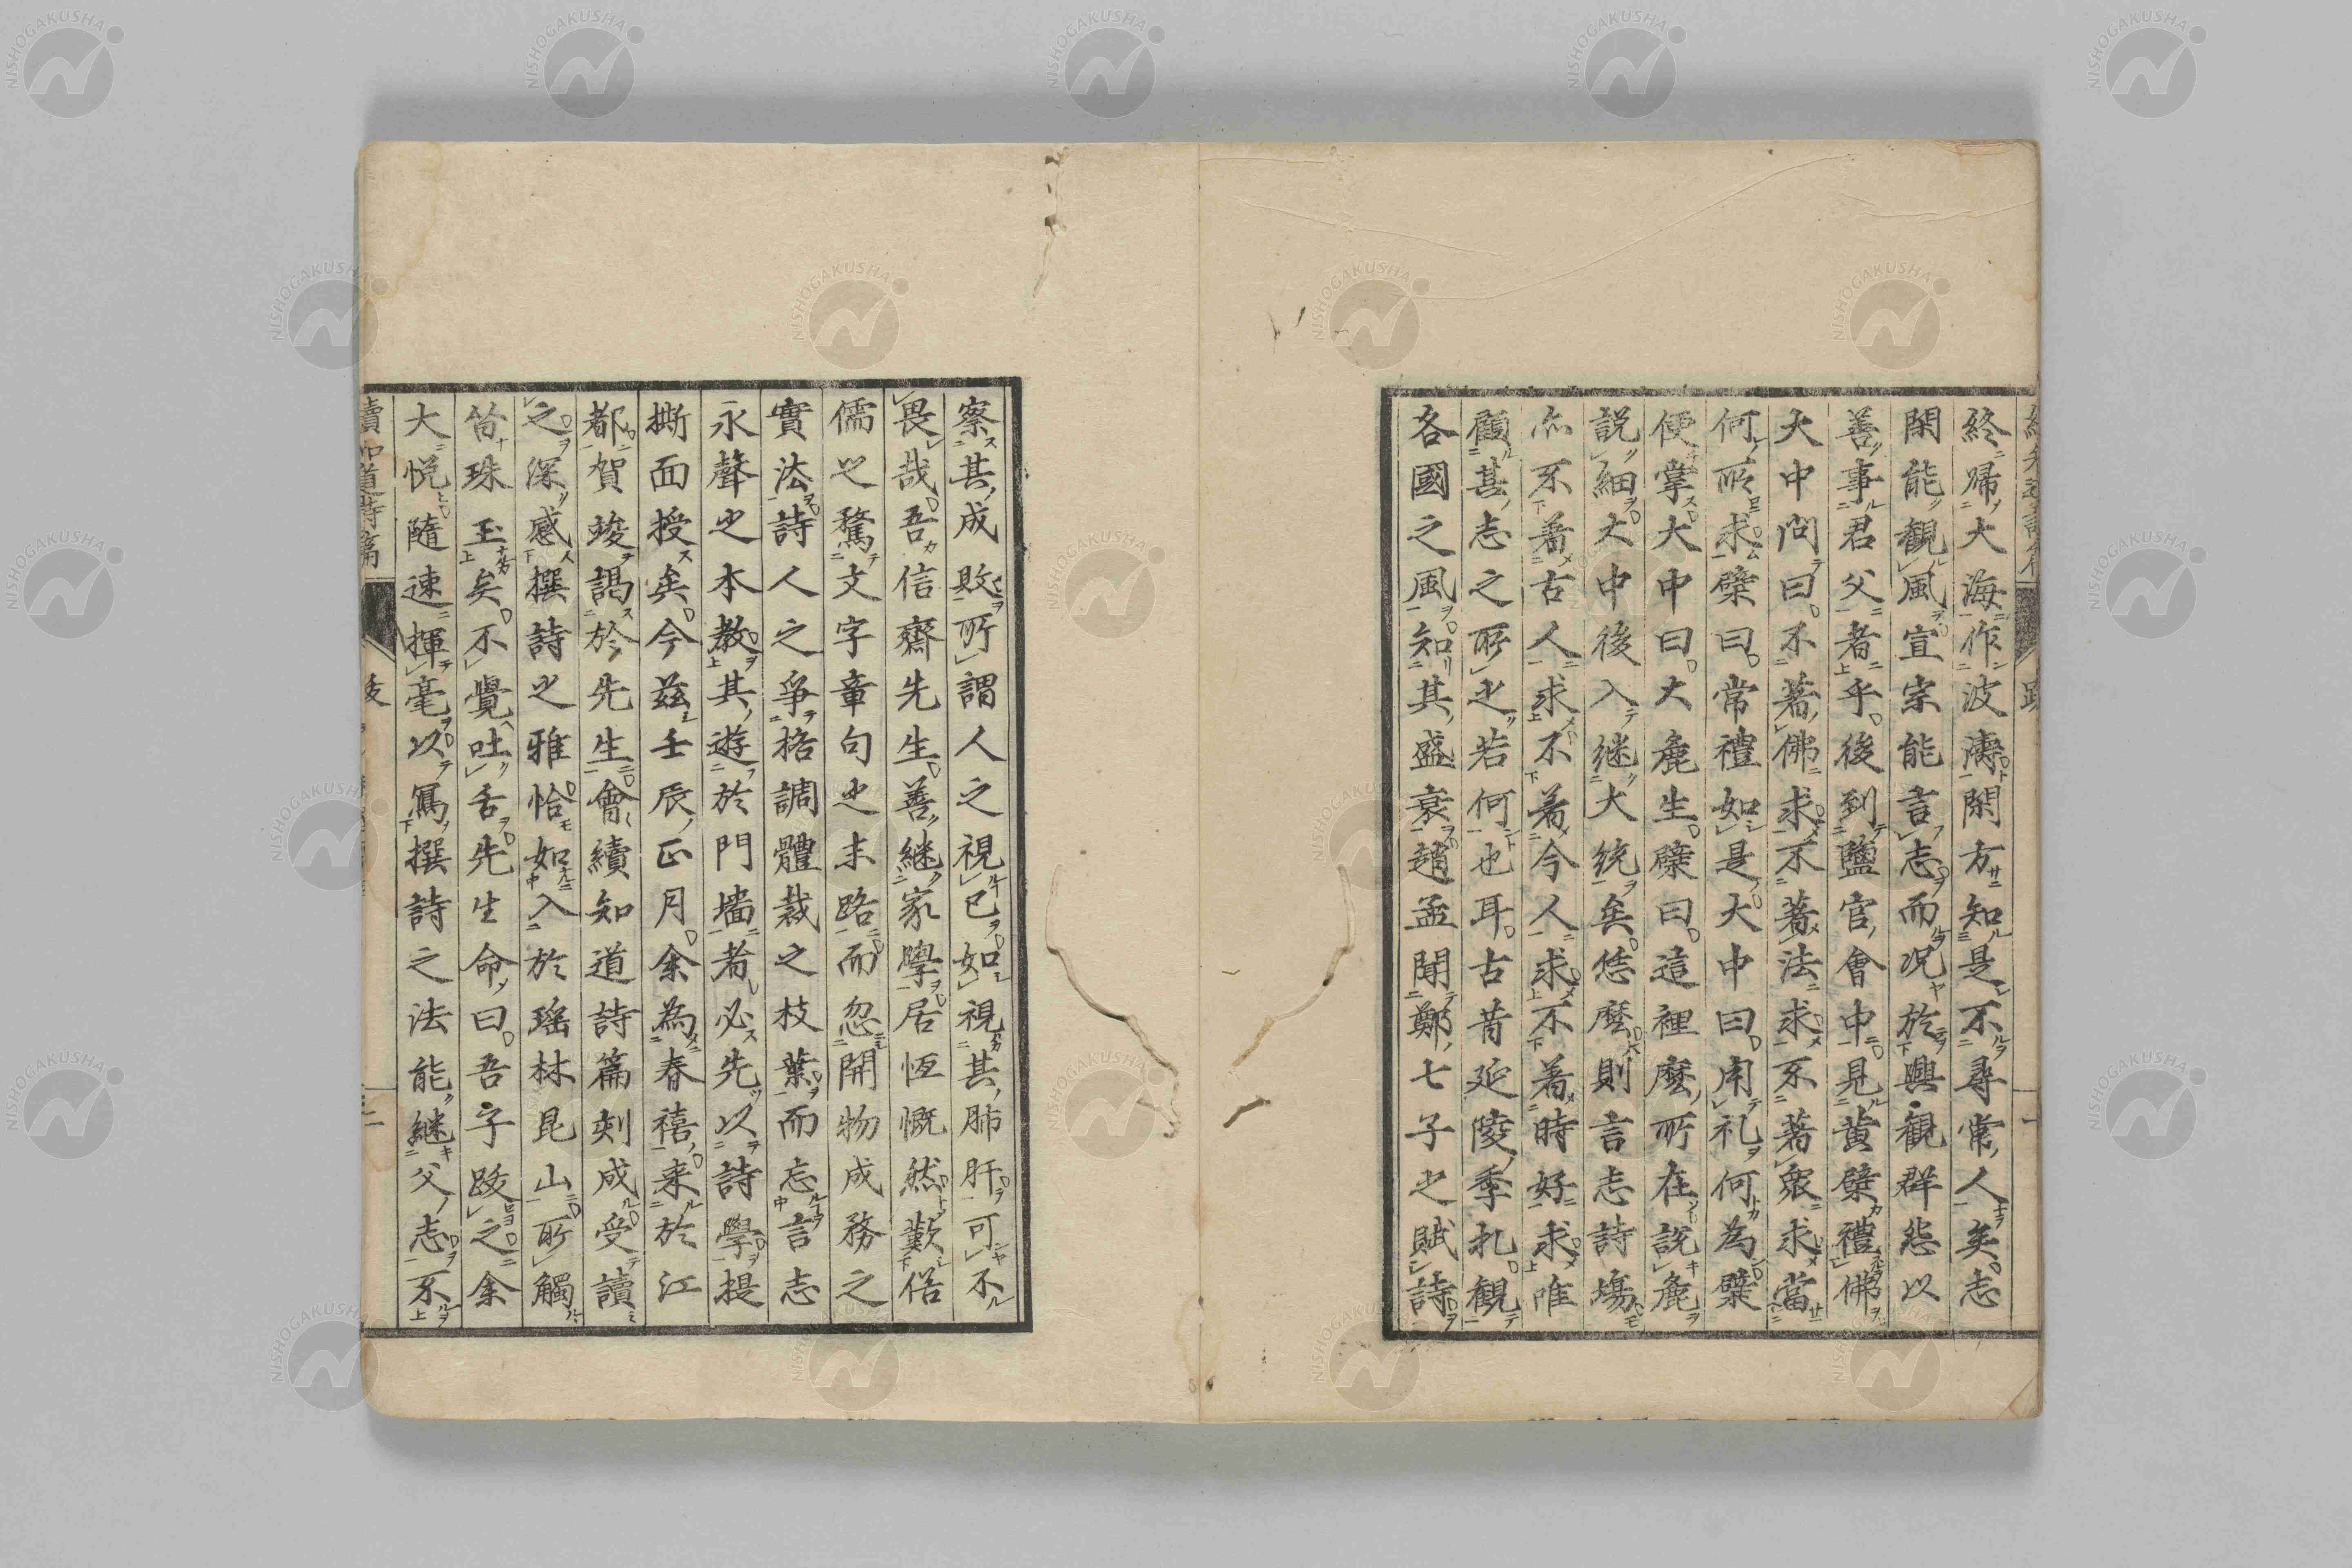 終歸大海作波濤閑方知是不尋常人矣志
閑能觀風宣宗能言志而况於興觀群怨以
善事君父者乎後到鹽官會中見黄檗禮佛
大中問曰不著佛求不著法求不著衆求當
何所求檗曰常禮如是大中曰用礼何為檗
便掌大中曰大麁生檗曰這裡麼所在説麁
説細大中後入継大統矣恁麼則言志詩塲
亦不著古人求不著今人求不著時好求唯
顧其志之所之若何也耳古昔延陵季札觀
各國之風知其盛衰趙孟聞鄭七子之賦詩
察其成敗所謂人之視已如視其肺肝可不
畏哉吾信齋先生善継家學居恆慨然歎俗
儒之騖文字章句之末路而忽開物成務之
實法詩人之爭格調體裁之枝葉而忘言志
永聲之本教其遊於門墻者必先以詩學提
撕面授矣今茲壬辰正月余為春禧来於江
都賀竣謁於先生會續知道詩篇刻成受讀
之深感撰詩之雅恰如入於瑶林昆山所觸
皆珠玉矣不覺吐舌先生命曰吾子跋之余
大悦隨速揮毫以寫撰詩之法能継父志不
續知道詩篇
跋